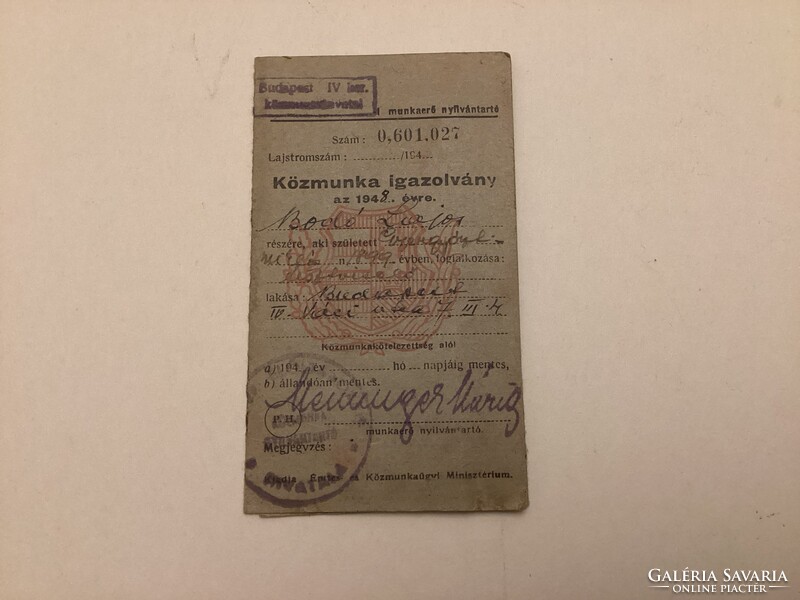 Budapest IV ker.
munkaerő nyilvántartó
Szám: 0,601.027
Lajstromszám: ............/194....
Közmunka igazolvány
az 1948. évre.
Bodó Lajos
részére, aki született
n, 1899 évben, foglalkozása:
lakása: Budapest
IV. Váci utca 7. III. 4
Közmunkakötelezettség alól
a) 194... év ............ hó .... napjáig mentes,
b) állandóan mentes.
Menninger Mária
P. H.
munkaerő nyilvántartó.
Megjegyzés:
Kiadja Építés és Közmunkaügyi Minisztérium.
GALÉRIA SAVARIA
ONLINE PIACTÉR